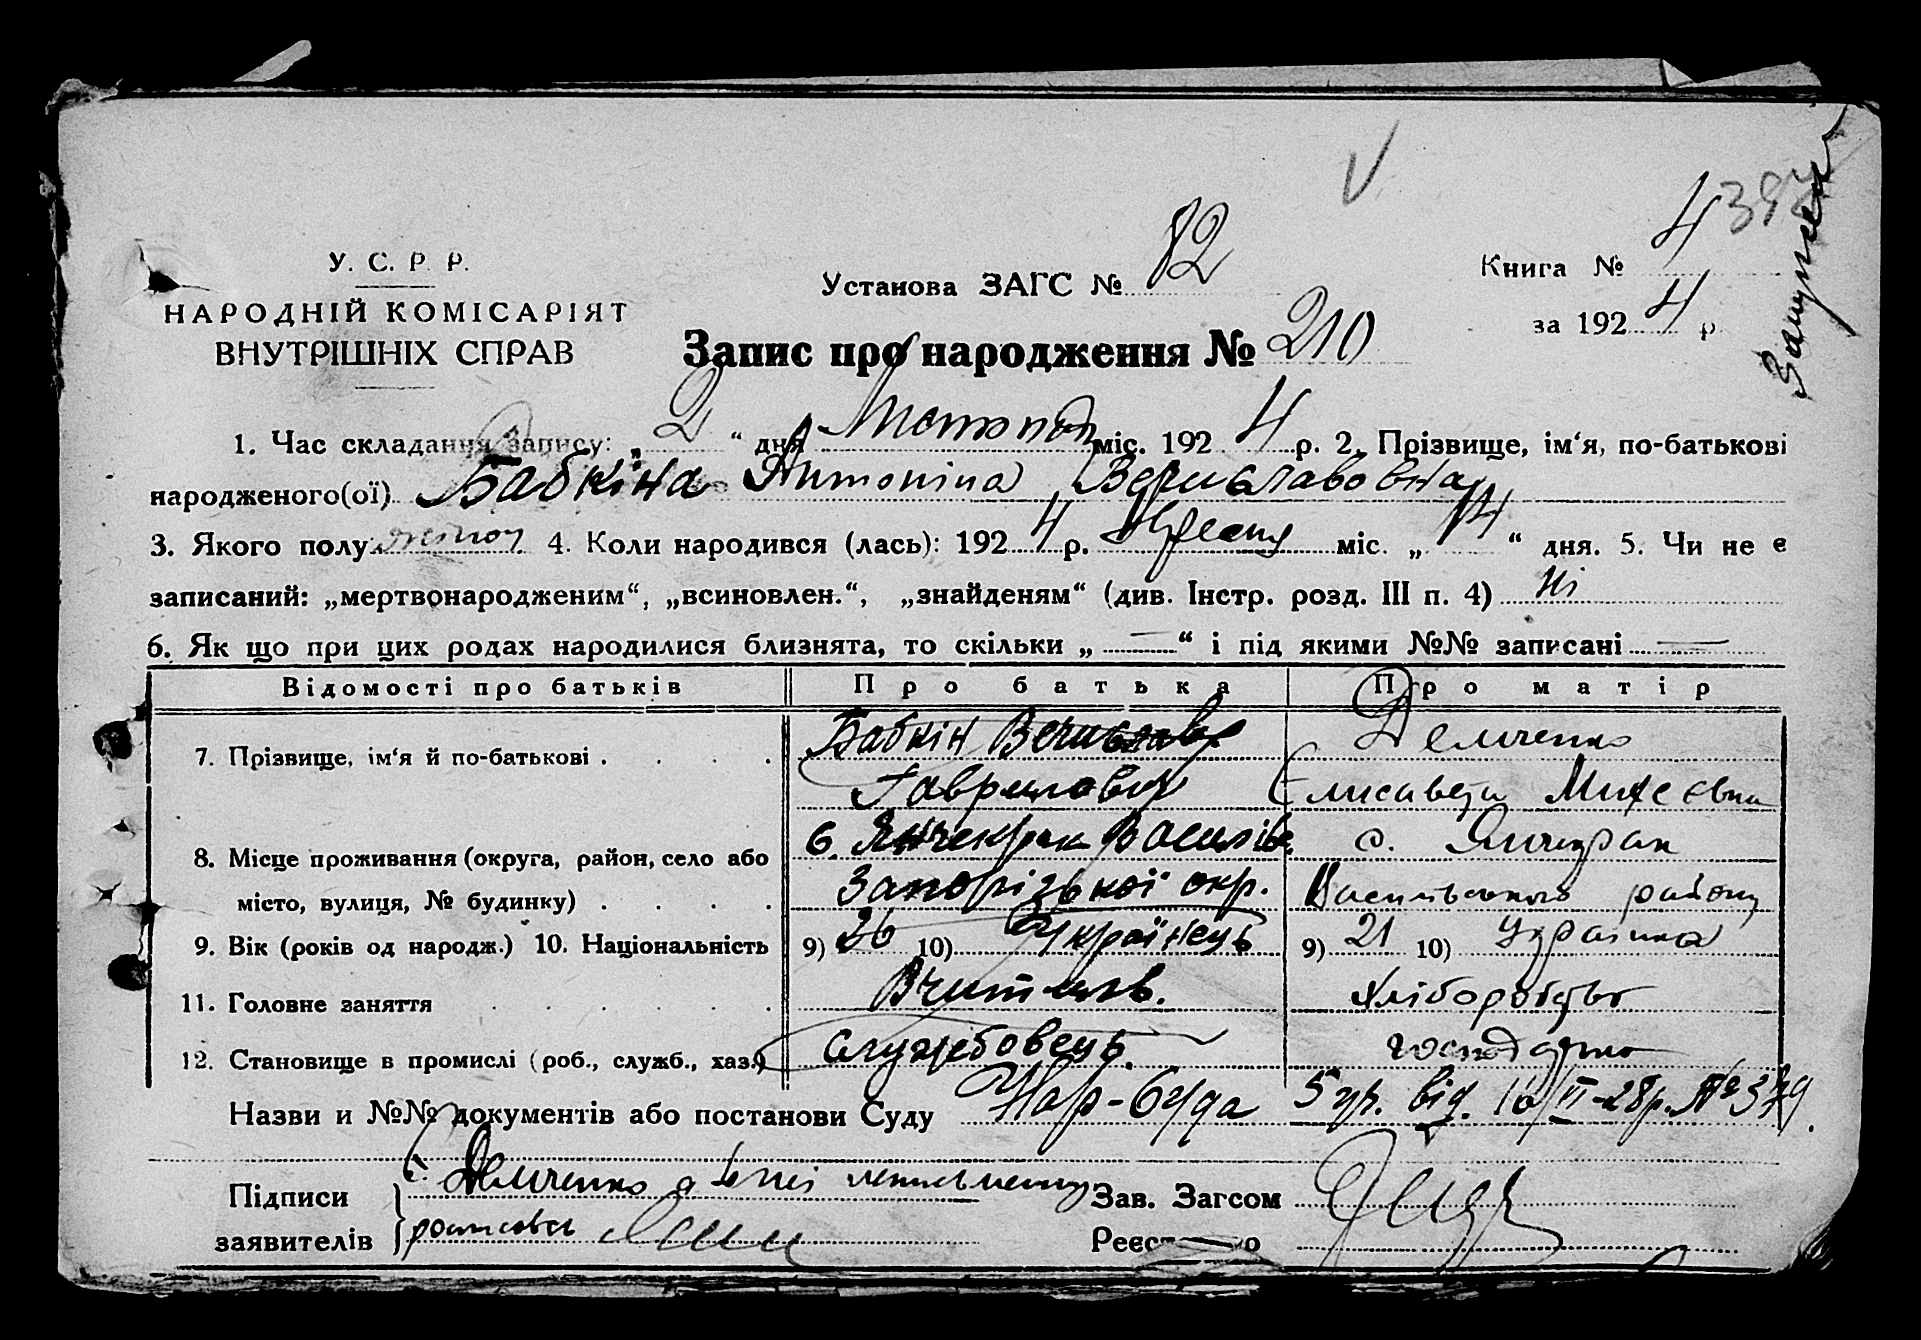 У. С. Р. Р.
НАРОДНІЙ КОМІСАРІЯТ
ВНУТРІШНІХ СПРАВ
Установа ЗАГС № 82
Книга № 4
за 1924 р.
Запис про народження № 210
1. Час складання запису: „ 2 “ дня Листопад міс. 1924 р. 2. Прізвище, ім‘я, по-батькові
народженого(ої) Бабкіна Антоніна Вечиславовна
3. Якого полу 4. Коли народився (лась): 1924 р. міс. „ 14 “ дня. 5. Чи не є
записаний: „мертвонародженим“, „всиновлен.“, „знайденям“ (див. Інстр. розд. III п. 4) Ні
6. Як що при цих родах народилися близнята, то скільки „ — “ і під якими №№ записані —
Відомості про батьків Про батька Про матір
7. Прізвище, ім‘я й по-батькові . . . . Бабкін Вечислав Демченко
Гаврилович Елисавета Михеєвна
8. Місце проживання (округа, район, село або с. Янчекрак Василів. с. Янчекрак
місто, вулиця, № будинку) . . . . Запорізької окр. Васильвського району
9. Вік (років од народж.) 10. Національність 9) 26 10) Українець 9) 21 10) Украінка
11. Головне заняття . . . . . . Вчитиль. Хліборобство
12. Становище в промислі (роб., служб., хаз.) Служебовець.
Назви и №№ документів або постанови Суду Нар-суда 5 від. 28 р. № 379
Підписи
заявителів
Демченко а
Зав. Загсом